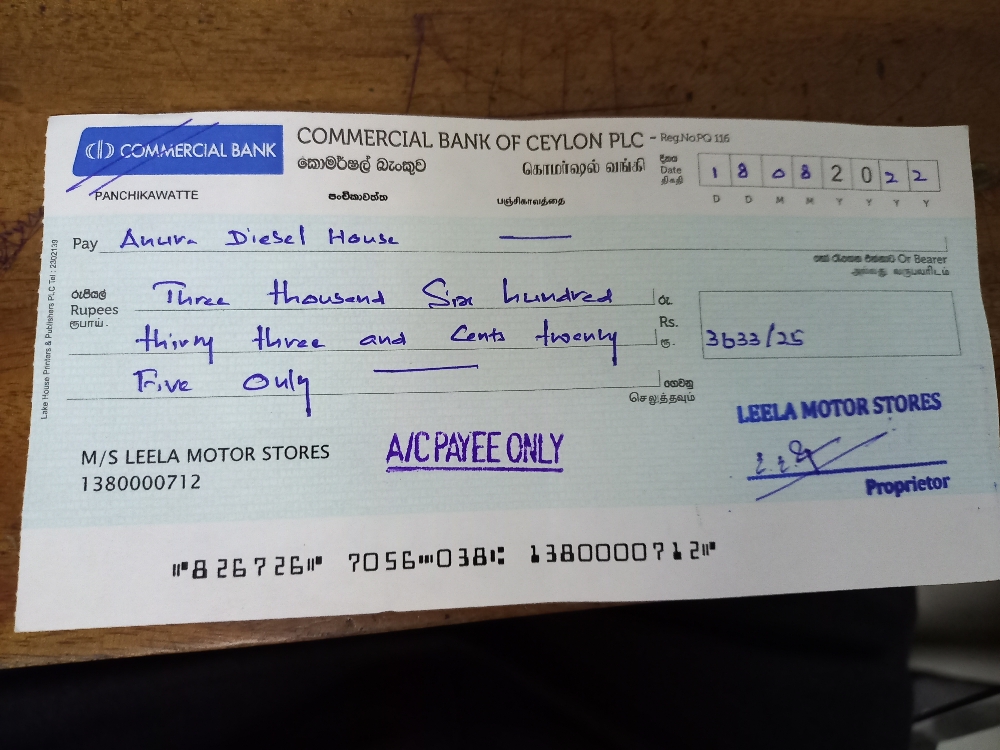 COMMERCIAL BANK
COMMERCIAL BANK OF CEYLON PLC - Reg.No.PQ 116
කොමර්ෂල් බැංකුව கொமர்ஷல் வங்கி
දිනය
Date
திகதி
1 8 0 8 2 0 2 2
D D M M Y Y Y Y
PANCHIKAWATTE පංචිකාවත්ත பஞ்சிகாவத்தை
Pay Anura Diesel House
Or Bearer
அல்லது வருபவரிடம்
රුපියල්
Rupees
ரூபாய்.
Three thousand Six hundred
thirty three and Cents twenty
Five Only
රු.
Rs.
ரூ.
3633/25
ගෙවනු
செலுத்தவும்
Lake House Printers & Publishers PLC Tel : 2302139
LEELA MOTOR STORES
Proprietor
M/S LEELA MOTOR STORES
1380000712
A/C PAYEE ONLY
⑈826726⑈ 7056⑉038⑆ 1380000712⑈